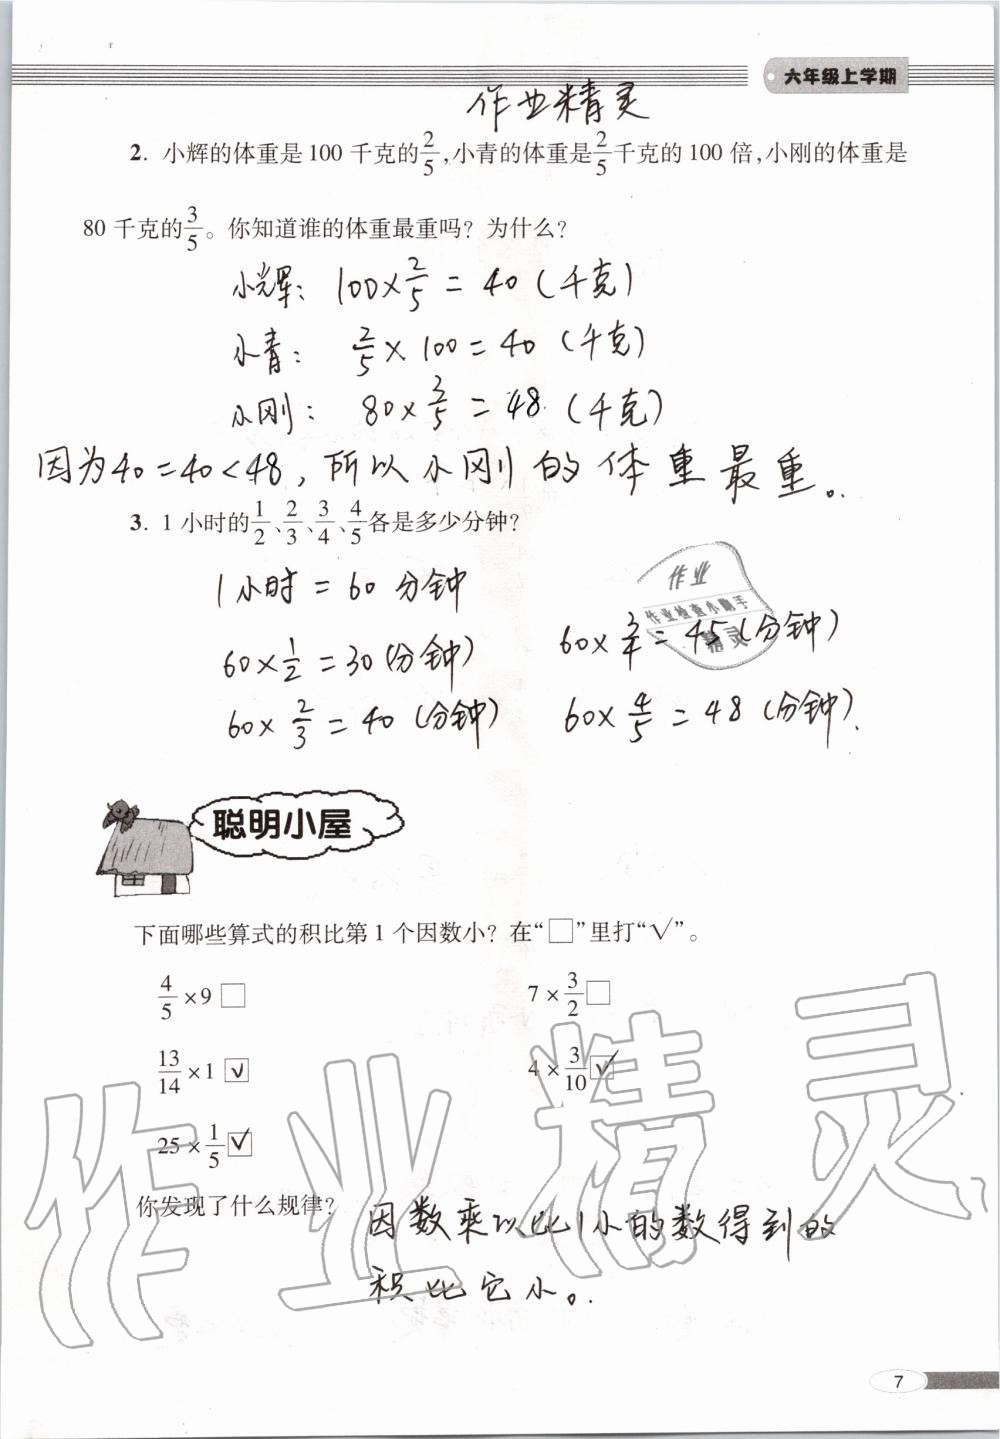 六年级上学期
作业精灵
2. 小辉的体重是100千克的2/5,小青的体重是2/5千克的100倍,小刚的体重是
80千克的3/5。你知道谁的体重最重吗?为什么?
小辉: 100×2/5=40(千克)
小青: 2/5×100=40(千克)
小刚: 80×3/5=48(千克)
因为40=40<48,所以小刚的体重最重。
3. 1小时的1/2、2/3、3/4、4/5各是多少分钟?
1小时=60分钟
作业
作业检查小助手
精灵
60×1/2=30(分钟) 60×3/4=45(分钟)
60×2/3=40(分钟) 60×4/5=48(分钟)
聪明小屋
下面哪些算式的积比第1个因数小?在“□”里打“√”。
4/5×9 □ 7×3/2 □
13/14×1 ☑ 4×3/10 ☑
25×1/5 ☑
你发现了什么规律?
因数乘以比1小的数得到的
积比它小。
作业精灵
7